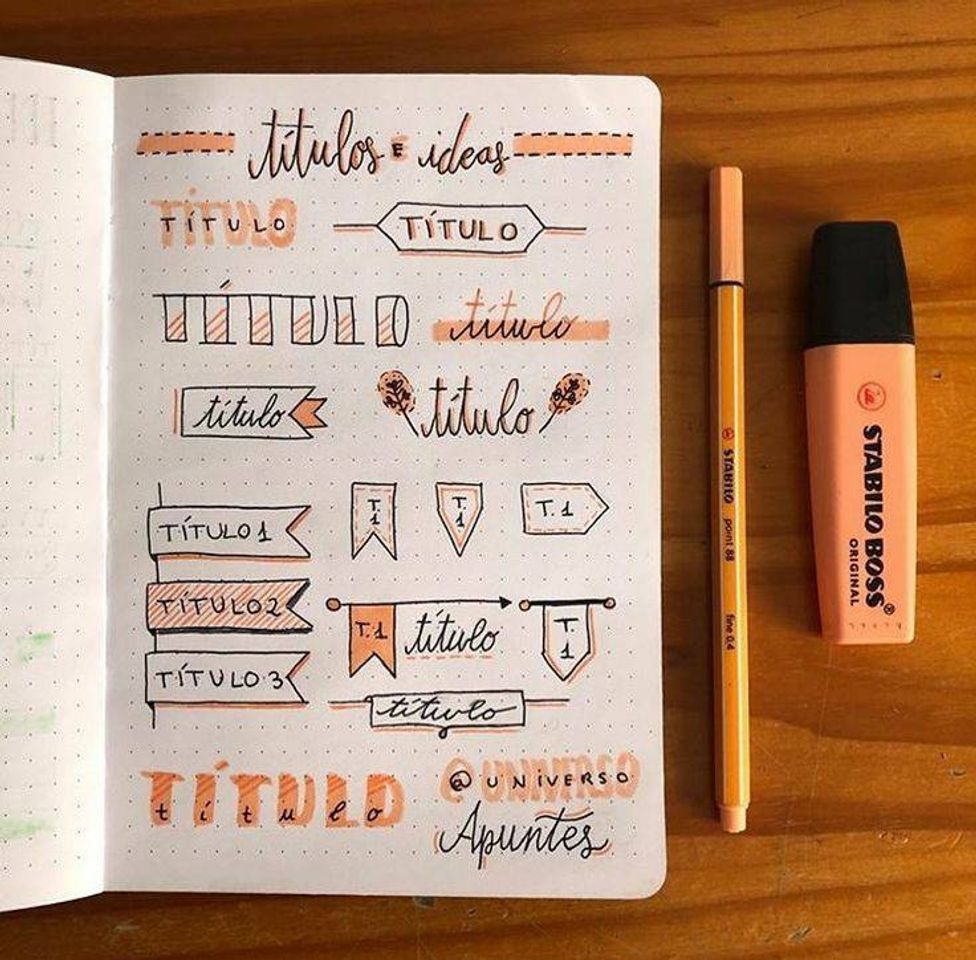 títulos E ideas
TÍTULO
TÍTULO
TÍTULO
título
título
título
TÍTULO 1
TÍTULO 2
TÍTULO 3
T.1
T.1
T.1
T.1
título
T.1
título
TÍTULO
título
@UNIVERSO
@UNiVERSO
Apuntes
STABILO point 88 fine 0.4
STABILO BOSS®
ORIGINAL